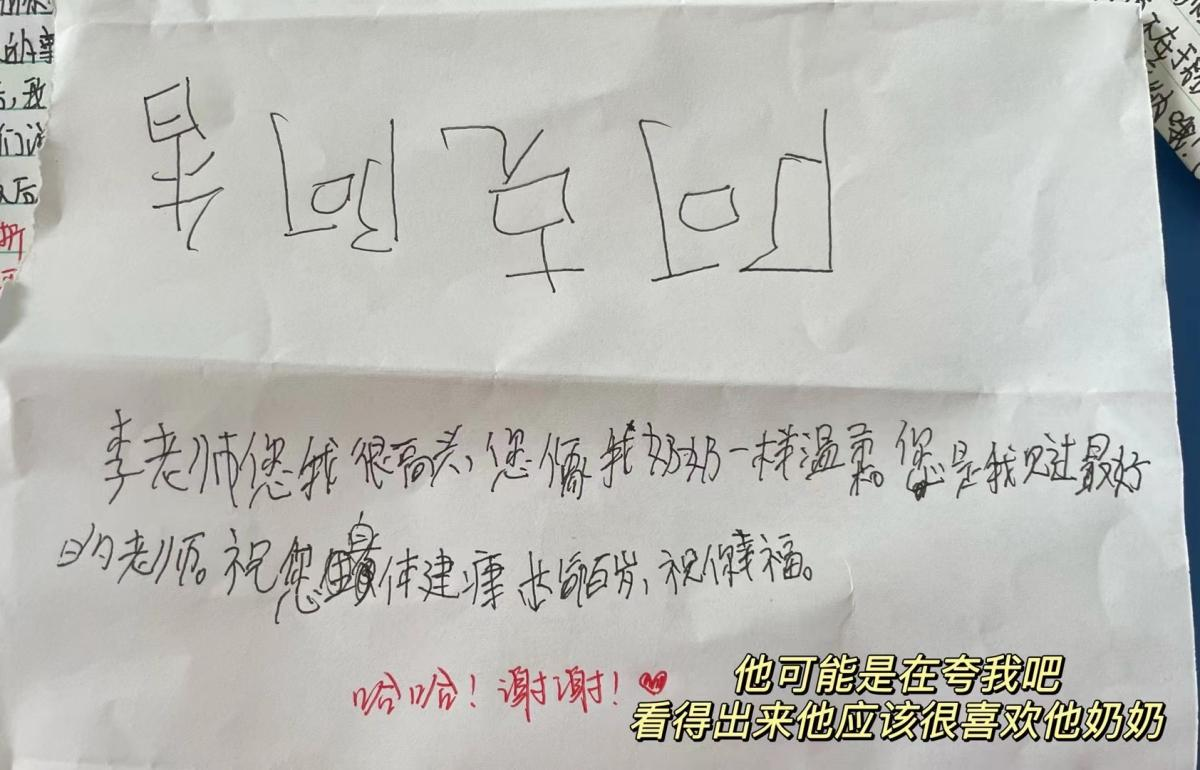 李老师您我很高兴，您像我奶奶一样温柔。您是我见过最好
的老师。祝您身体建康长命百岁，祝你幸福。
哈哈！谢谢！
他可能是在夸我吧
看得出来他应该很喜欢他奶奶